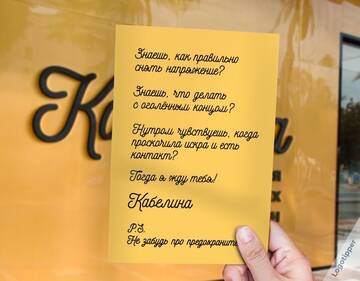 Знаешь, как правильно
снять напряжение?
Знаешь, что делать
с оголённым концом?
Нутром чувствуешь, когда
проскочила искра и есть
контакт?
Тогда я жду тебя!
Кабелина
P.S.
Не забудь про предохранитель
Logotipper